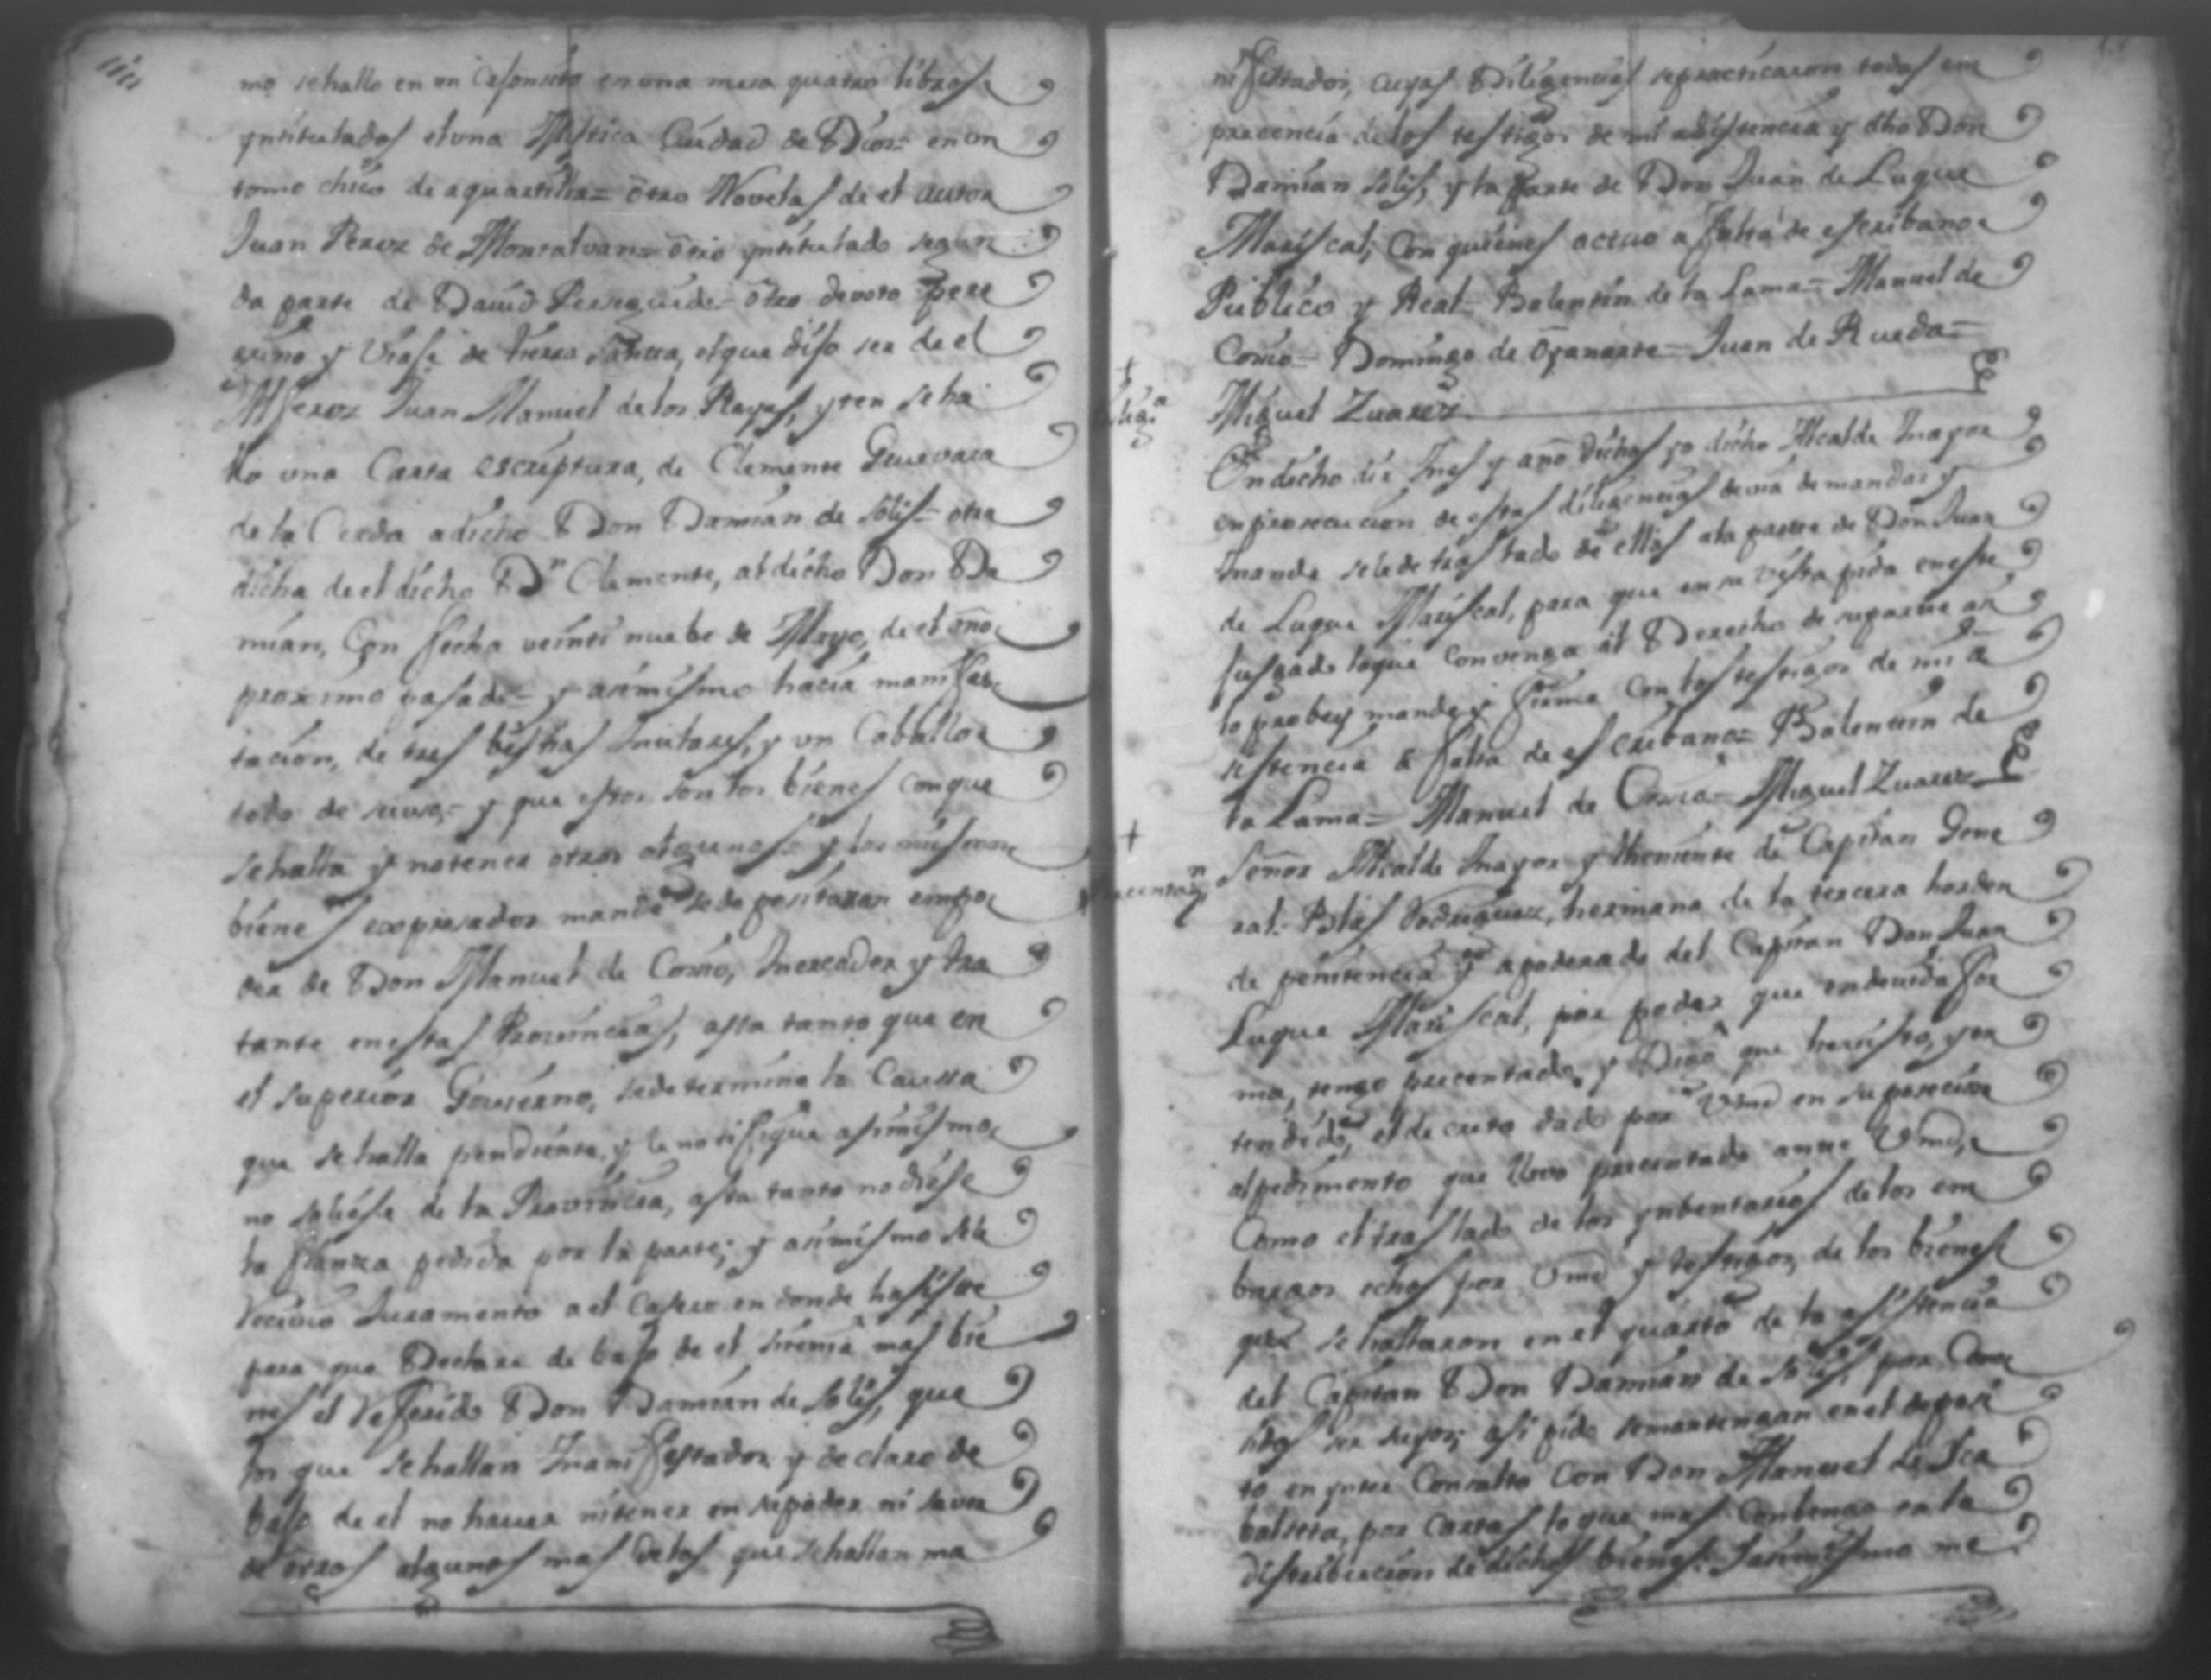 mo se hallo en un Cajonsito en una mesa quatro libros
yntitulados el una Mistica Ciudad de Dios = en un
tomo chico de aquartilla = otro Novelas de el autor
Juan Perez de Montalvan = otro yntitulado segun
da parte de David Perseguido = otro devoto pere
grino y Viaje de tierra santa, el que dijo ser de el
Alferez Juan Manuel de los Reyes, yten se ha
llo una Carta escriptura, de Clemente Guevara
de la Cerda a dicho Don Damian de Solis = otra
dicha de el dicho Dn Clemente, al dicho Don Da
mian, Con fecha veinti nuebe de Mayo, de el año
proximo pasado = y asimismo hacia manifes
tacion, de tres bestias mulares, y un Caballo
todo de su uso = y que estos son los bienes con que
se halla y no tener otros algunos = y los mismos
bienes expresados mande se depositaran en po
der de Don Manuel de Cosio, mercader y tra
tante en estas Provincias, asta tanto que en
el superior Govierno, se determina la Caussa
que se halla pendiente, y le notifique asimismo
no saliese de la Provincia, asta tanto no diese
la fianza pedida por la parte; y asimismo se le
Recivio Juramento a el Casero en donde hasiste
para que Declare de bajo de el si tenia mas bie
nes el Referido Don Damian de Solis, que
los que se hallan manifestados y declaro de
bajo de el no haver ni tener en su poder ni saver
de otros algunos mas de los que se hallan ma
nifestados, cuyas Diligencias se practicaron todas em
precencia de los testigos de mi asistencia y dho Don
Damian Solis, y la parte de Don Juan de Luque
Mariscal; Con quienes actuo a falta de escribano
Publico y Real = Balentin de la Lama = Manuel de
Cosio = Domingo de Oyanarte = Juan de Rueda =
Miguel Zuarez
En dicho dia mes y año dichos yo dicho Alcalde mayor
en prosecucion de estas diligencias devia de mandar y
mande se le de traslado de ellas a la parte de Don Juan
de Luque Mariscal, para que en su vista pida en este
Jusgado lo que convenga al Derecho de su parte asi
lo probey mande y firme Con los testigos de mi a
sistencia a falta de escribano = Balentin de
la Lama = Manuel de Cosio = Miguel Zuarez
Señor Alcalde mayor y theniente de Capitan Gene
ral = Blas Rodriguez, hermano de la tercera horden
de penitencia y apoderado del Capitan Don Juan
Luque Mariscal, por poder que en devida for
ma, tengo precentado, y Digo que he visto, y en
tendido, el decreto dado por Vmd en su posecion
al pedimento que llevo precentado ante Vmd,
Como el traslado de los ynbentarios de los em
bargos echos por Vmd y testigos, de los bienes
que se hallaron en el quarto de la asistencia
del Capitan Don Damian de Solis, por
ser suyos; asi pido se mantengan en el deposi
to en ynter Consulto Con Don Manuel de Sca
balseta, por Cartas lo que mas Conbenga en la
distribucion de dichos bienes. Y asimismo me